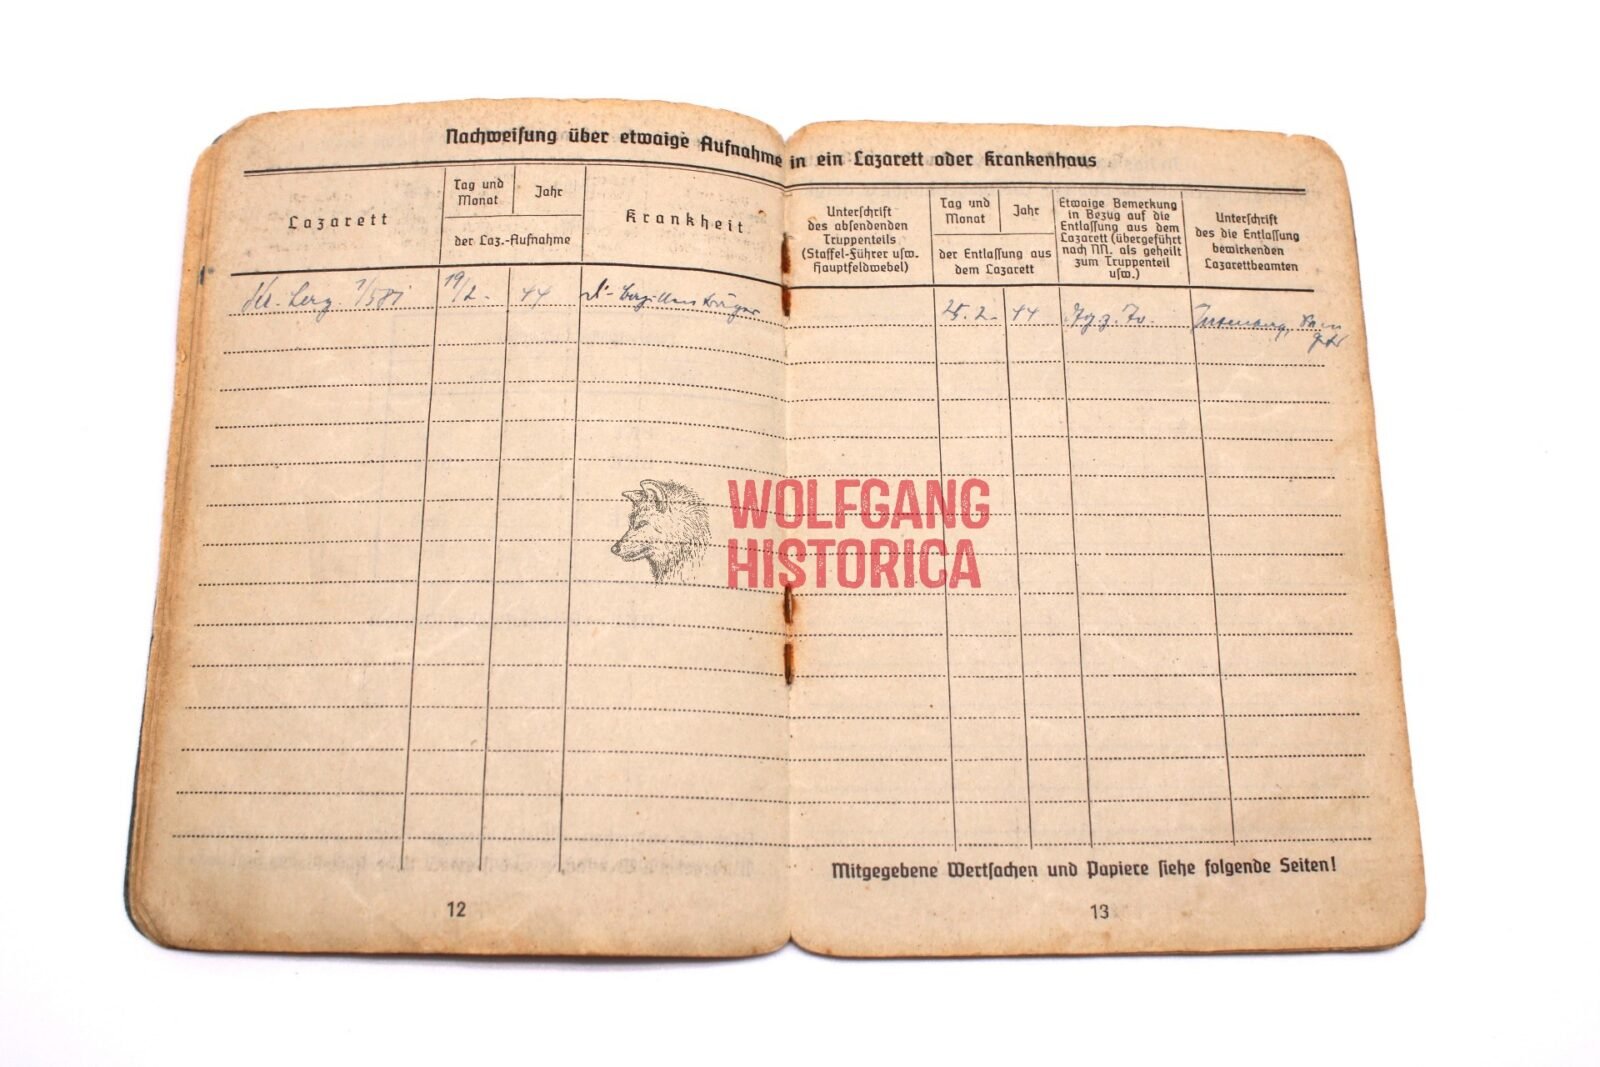 Nachweisung über etwaige Aufnahme in ein Lazarett oder Krankenhaus
Lazarett
Tag und
Monat
Jahr
der Laz.-Aufnahme
Krankheit
Unterschrift
des absendenden
Truppenteils
(Staffel-Führer usw.
Hauptfeldwebel)
Tag und
Monat
Jahr
der Entlassung aus
dem Lazarett
Etwaige Bemerkung
in Bezug auf die
Entlassung aus dem
Lazarett (übergeführt
nach NN. als geheilt
zum Truppenteil
usw.)
Unterschrift
des die Entlassung
bewirkenden
Lazarettbeamten
19/2. 44 25. 2. 44
WOLFGANG
HISTORICA
Mitgegebene Wertsachen und Papiere siehe folgende Seiten!
12
13